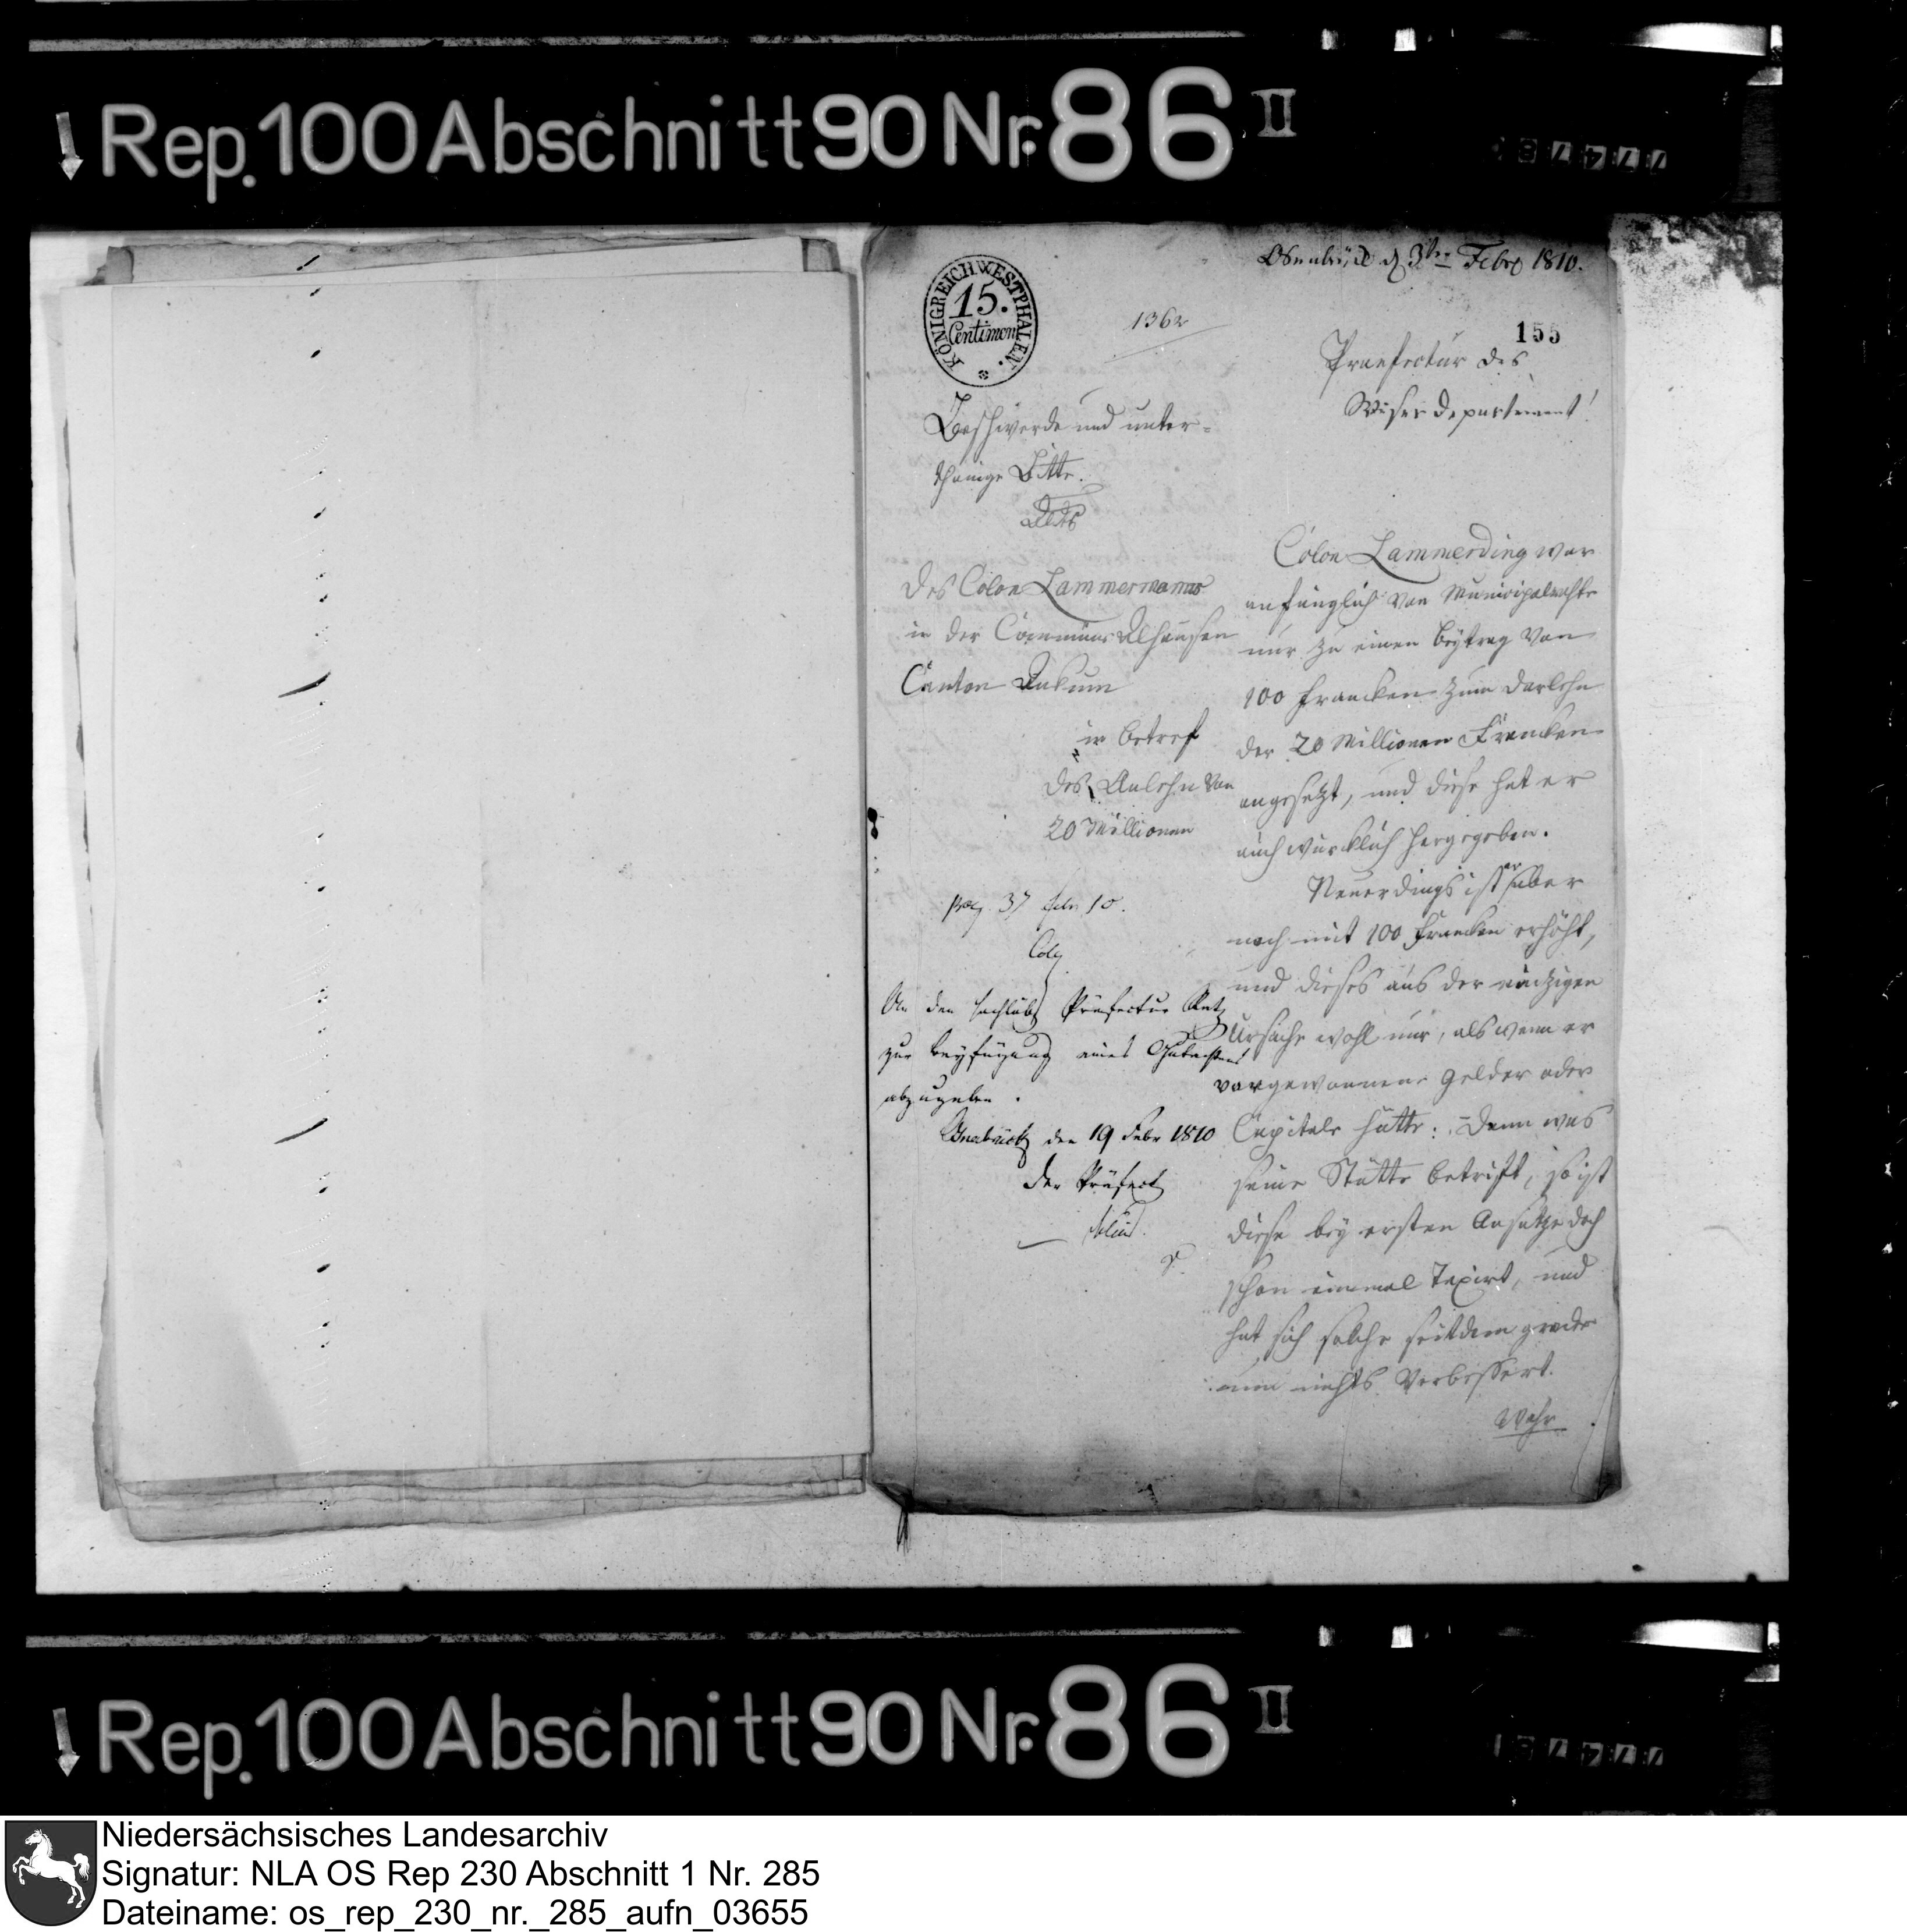 Rep. 100 Abschnitt 90 Nr. 86 II
Osnabrück d 3ten Febr 1810.
KÖNIGREICH WESTPHALEN.
15.
Centimen
1362
155
Praefectur des
Weser departement!
Beschwerde und unter-
thänige Bitte.
des Colon Lammermann
in der Commune Alfhausen
Canton Ankum
in betref
des Anlehn von
20 Millionen
Colon Lammerding war
anfänglich von Municipalrathe
nur zu einen beytrag von
100 francken zum darlehn
der 20 Millionen Francken
angesetzt, und diese hat er
auch würcklich hergegeben.
Neuerdings ist er aber
noch mit 100 francken erhöht,
und dieses aus der einzigen
Ursache wohl nur, als wenn er
vorgewonnene gelder oder
Capitale hätte: Denn was
seine Stätte betrift, so ist
diese bey ersten Ansatze doch
schon einmal Taxirt, und
hat sich solche seitdem grade
um nichts verbessert.
Wahr
An den Präfectur Rath
zur beyfügung eines Gutachtens
abzugeben.
Osnabrück den 19 Febr 1810
der Präfect
Rep. 100 Abschnitt 90 Nr. 86 II
Niedersächsisches Landesarchiv
Signatur: NLA OS Rep 230 Abschnitt 1 Nr. 285
Dateiname: os_rep_230_nr._285_aufn_03655